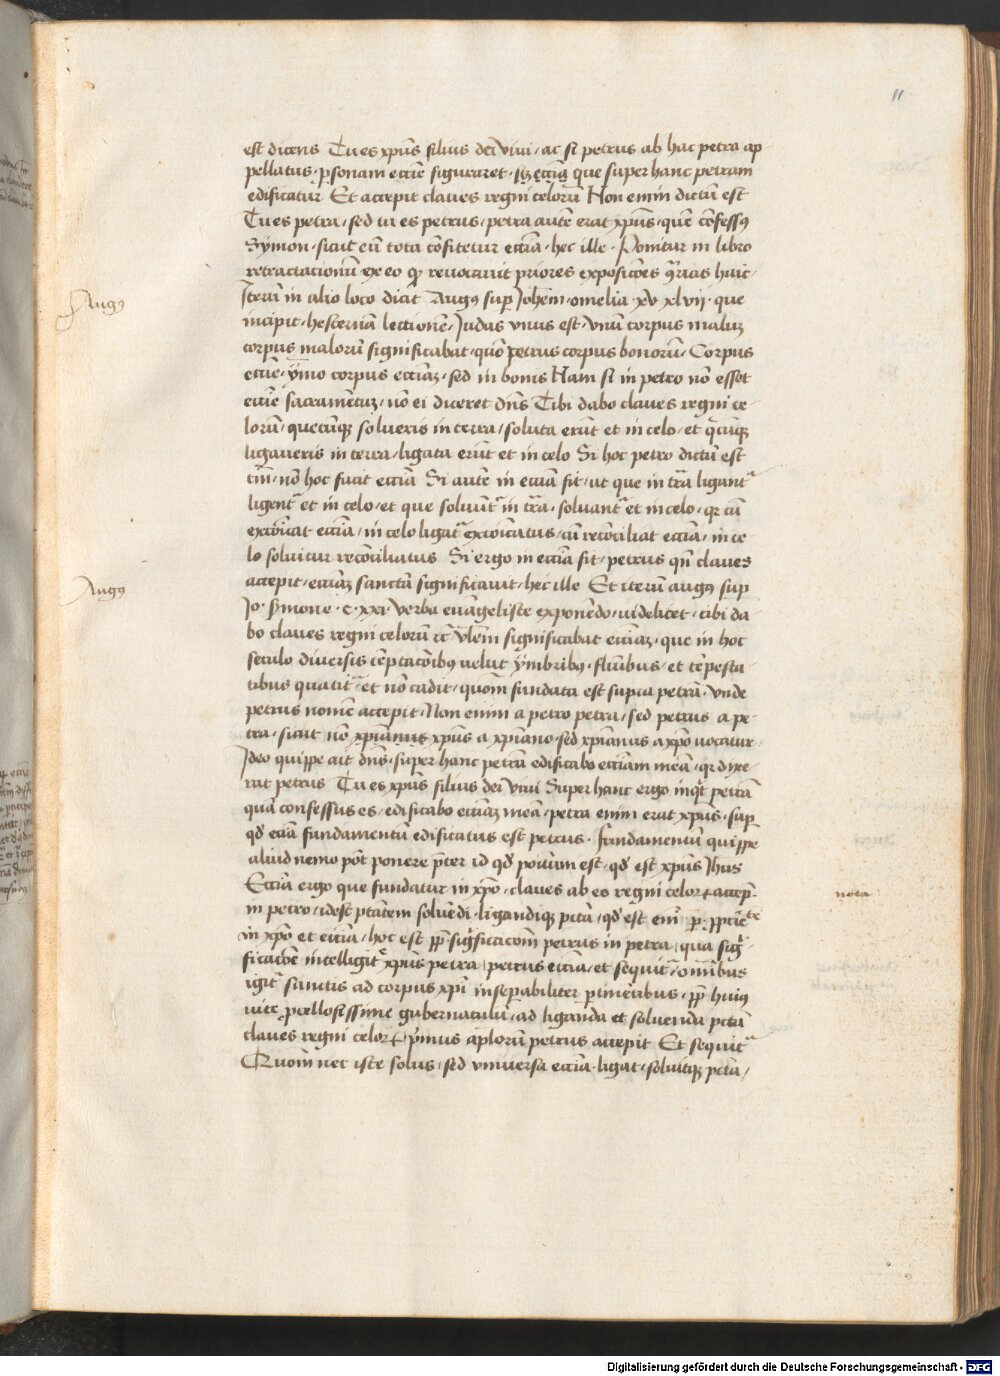 11
est dicens Tu es xp̄us filius dei vivi / ac si petrus ab hac petra ap
pellatus · p̱sonam eccīe figuraret · que super hanc petram
edificatur Et accepit claves regni celorū Non enim dictū est
Tu es petra / sed tu es petrus / petra autē erat xp̄us / quē cōfessꝰ
Symon · sicut eū tota cōfitetur eccīa · hec ille · Ponitur in libro
retractacionū ex eo revocavit priores exposicōes huic /
Augꝰ
Iterū in alio loco dicit Augꝰ sup̱ Johēm · omelia · xlvii · que
incipit / hesternā lectionē / Judas vnus est / vnū corpus maluꝫ
corpus malorū significabat / quō petrus corpus bonorū / Corpus
eccīe / ȳmo corpus eccīaꝫ / sed in bonis Nam si in petro nō esset
eccīe sacramētuꝫ / nō ei diceret dn̄s Tibi dabo claves regni ce
lorū / quecūqꝫ solveris in terra / soluta erūt et in celo / et q̄cūqꝫ
ligaveris in terra / ligata erūt et in celo Si hoc petro dictū est
tm̄ / nō hoc facit eccīa Si autē in eccīa fit / ut que in tr̄a ligant᷑
ligent᷑ et in celo / et que solvūt᷑ in tr̄a · solvant᷑ et in celo / qr cū
excōicat eccīa / in celo ligat᷑ excōicatus / cū recōciliat eccīa / in ce
lo solvitur recōciliatus Si ergo in eccīa fit / petrus qn̄ claves
accepit / eccīaꝫ sanctā significavit / hec ille Et iterū augꝰ sup̱
Augꝰ
Jo · s̄mone · c · xxi · verba evāgeliste exponēdo / videlicet / tibi da
bo claves regni celorū rc̄ vl̄em significabat eccīaꝫ · que in hoc
seculo diversis tēptacōibꝰ velut ymbribꝰ · flūibus / et tēpesta
tibus quatit᷑ et nō cadit / quoniā fundata est supra petrā / vnde
petrus nomē accepit / Non enim a petro petra / sed petrus a pe
tra / sicut nō xp̄us a xp̄iano · sed xp̄ianus a xp̄o vocatur /
Ideo quippe ait dn̄s / super hanc petrā edificabo eccīam meā / qr dixe
rat petrus Tu es xp̄us filius dei vivi Super hanc ergo inq̄t petrā
quā confessus es / edificabo eccīaꝫ meā / petra enim erat xp̄us / sup̱
qd̄ eciā fundamentū edificatus est petrus · Fundamentū quippe
aliud nemo pōt ponere p̄ter id qd̄ positum est / qd̄ est xp̄us Jhus
Eccīa ergo que fundatur in xp̄o / claves ab eo regni celoꝝ accep̱
nota
in petro / idest p̄tātem solvēdi · ligandiqꝫ pctā / qd̄ est eni p̱ p̱prietᵗᵉ
in xp̄o et eccīa / hoc est p̱ sig̅ficacōm petrus in petra / qua sig̅
ficacōe intelligit᷑ xp̄us petra / petrus eccīa / et sequit᷑ / omībus
igit᷑ sanctis ad corpus xp̄i insep̱abiliter p̱tinētibus / pp̄ huiꝰ
vite p̱cellosissime gubernaculū / ad liganda et solvenda pctā
claves regni celoꝝ p̄mus ap̄lorū petrus accepit Et sequit᷑
Quoniā nec iste solus / sed vniversa eccīa · ligat / solvitqꝫ pctā /
Digitalisierung gefördert durch die Deutsche Forschungsgemeinschaft - DFG